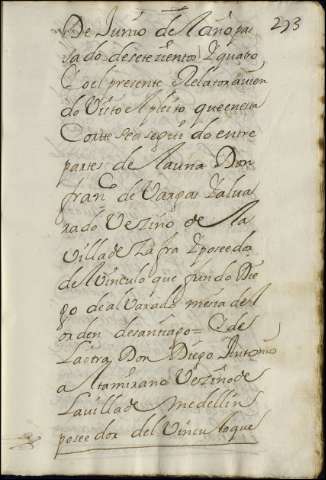 293
De Junio de el año pa
sado de setecientos Y quatro
Yo el presente Relator avien
do Visto el pleito que en esta
Corte se a seguido entre
partes de la una Don
fran.co de Vargas Y alva
rado Vezino de la
villa de Zafra Y poseedor
del Vinculo que fundo Die
go de alvarado mesia del
orden de santiago = Y de
La otra Don Diego Antonio
Altamirano Vezino de
La villa de medellin
poseedor del Vinculo que